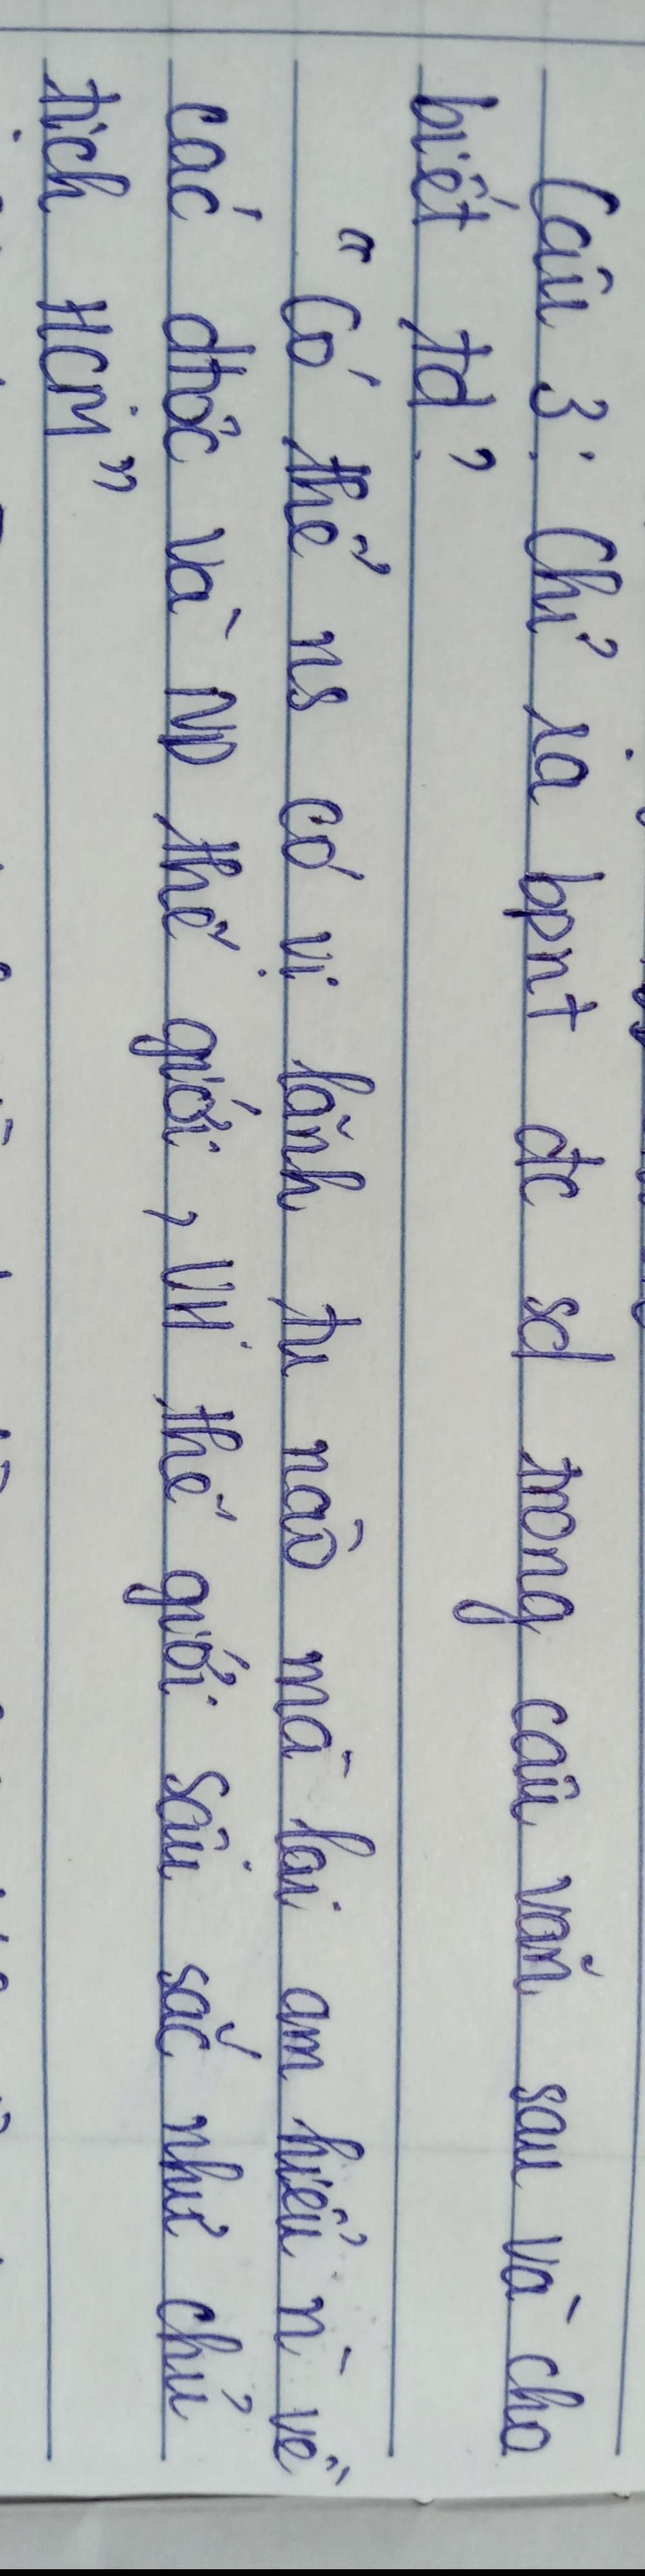 Câu 3: Chỉ ra bpnt đc sd trong câu văn sau và cho
biết td?
"Có thể ns có vị lãnh tụ nào mà lại am hiểu n` về
các dtộc và ND thế giới, VH thế giới sâu sắc như chủ
tịch HCM"